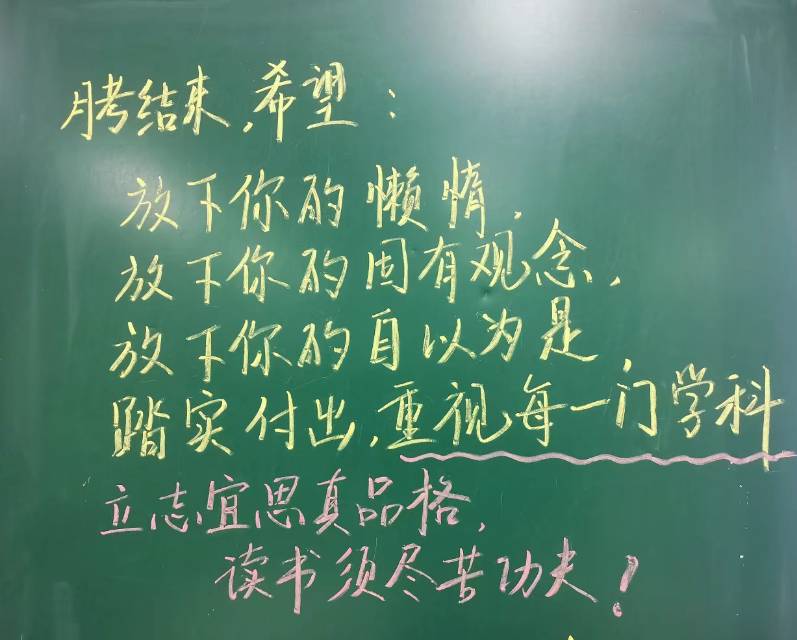 月考结束,希望:
放下你的懒惰,
放下你的固有观念,
放下你的自以为是,
踏实付出,重视每一门学科
立志宜思真品格,
读书须尽苦功夫!